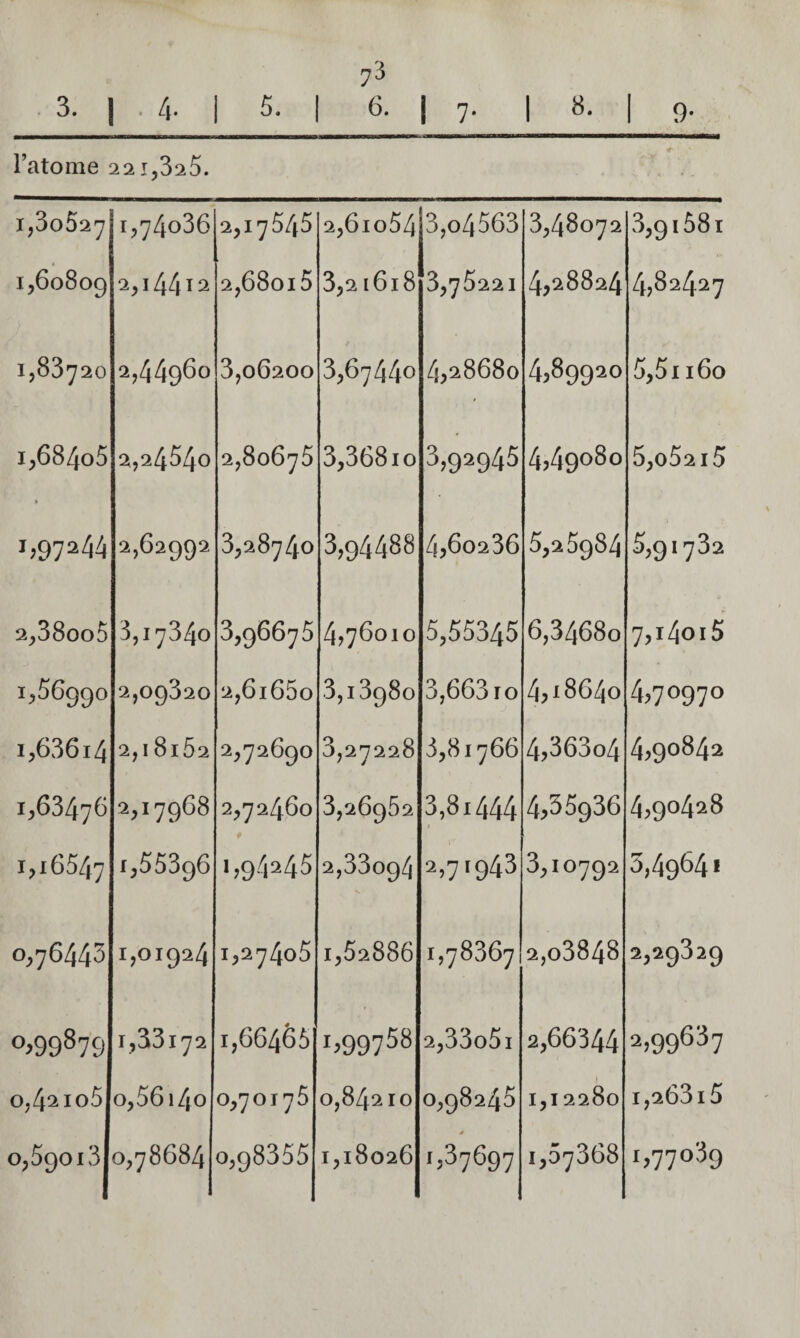 73
3. | 4. | 5. | 6. | 7. | 8. | 9.
l'atome 221,325.
1,30527 | 1,74036 | 2,17545 | 2,61054 | 3,04563 | 3,48072 | 3,91581
1,60809 | 2,14412 | 2,68015 | 3,21618 | 3,75221 | 4,28824 | 4,82427
1,83720 | 2,44960 | 3,06200 | 3,67440 | 4,28680 | 4,89920 | 5,51160
1,68405 | 2,24540 | 2,80675 | 3,36810 | 3,92945 | 4,49080 | 5,05215
1,97244 | 2,62992 | 3,28740 | 3,94488 | 4,60236 | 5,25984 | 5,91732
2,38005 | 3,17340 | 3,96675 | 4,76010 | 5,55345 | 6,34680 | 7,14015
1,56990 | 2,09320 | 2,61650 | 3,13980 | 3,66310 | 4,18640 | 4,70970
1,63614 | 2,18152 | 2,72690 | 3,27228 | 3,81766 | 4,36304 | 4,90842
1,63476 | 2,17968 | 2,72460 | 3,26952 | 3,81444 | 4,35936 | 4,90428
1,16547 | 1,55396 | 1,94245 | 2,33094 | 2,71943 | 3,10792 | 3,49641
0,76443 | 1,01924 | 1,27405 | 1,52886 | 1,78367 | 2,03848 | 2,29329
0,99879 | 1,33172 | 1,66465 | 1,99758 | 2,33051 | 2,66344 | 2,99637
0,42105 | 0,56140 | 0,70175 | 0,84210 | 0,98245 | 1,12280 | 1,26315
0,59013 | 0,78684 | 0,98355 | 1,18026 | 1,37697 | 1,57368 | 1,77039